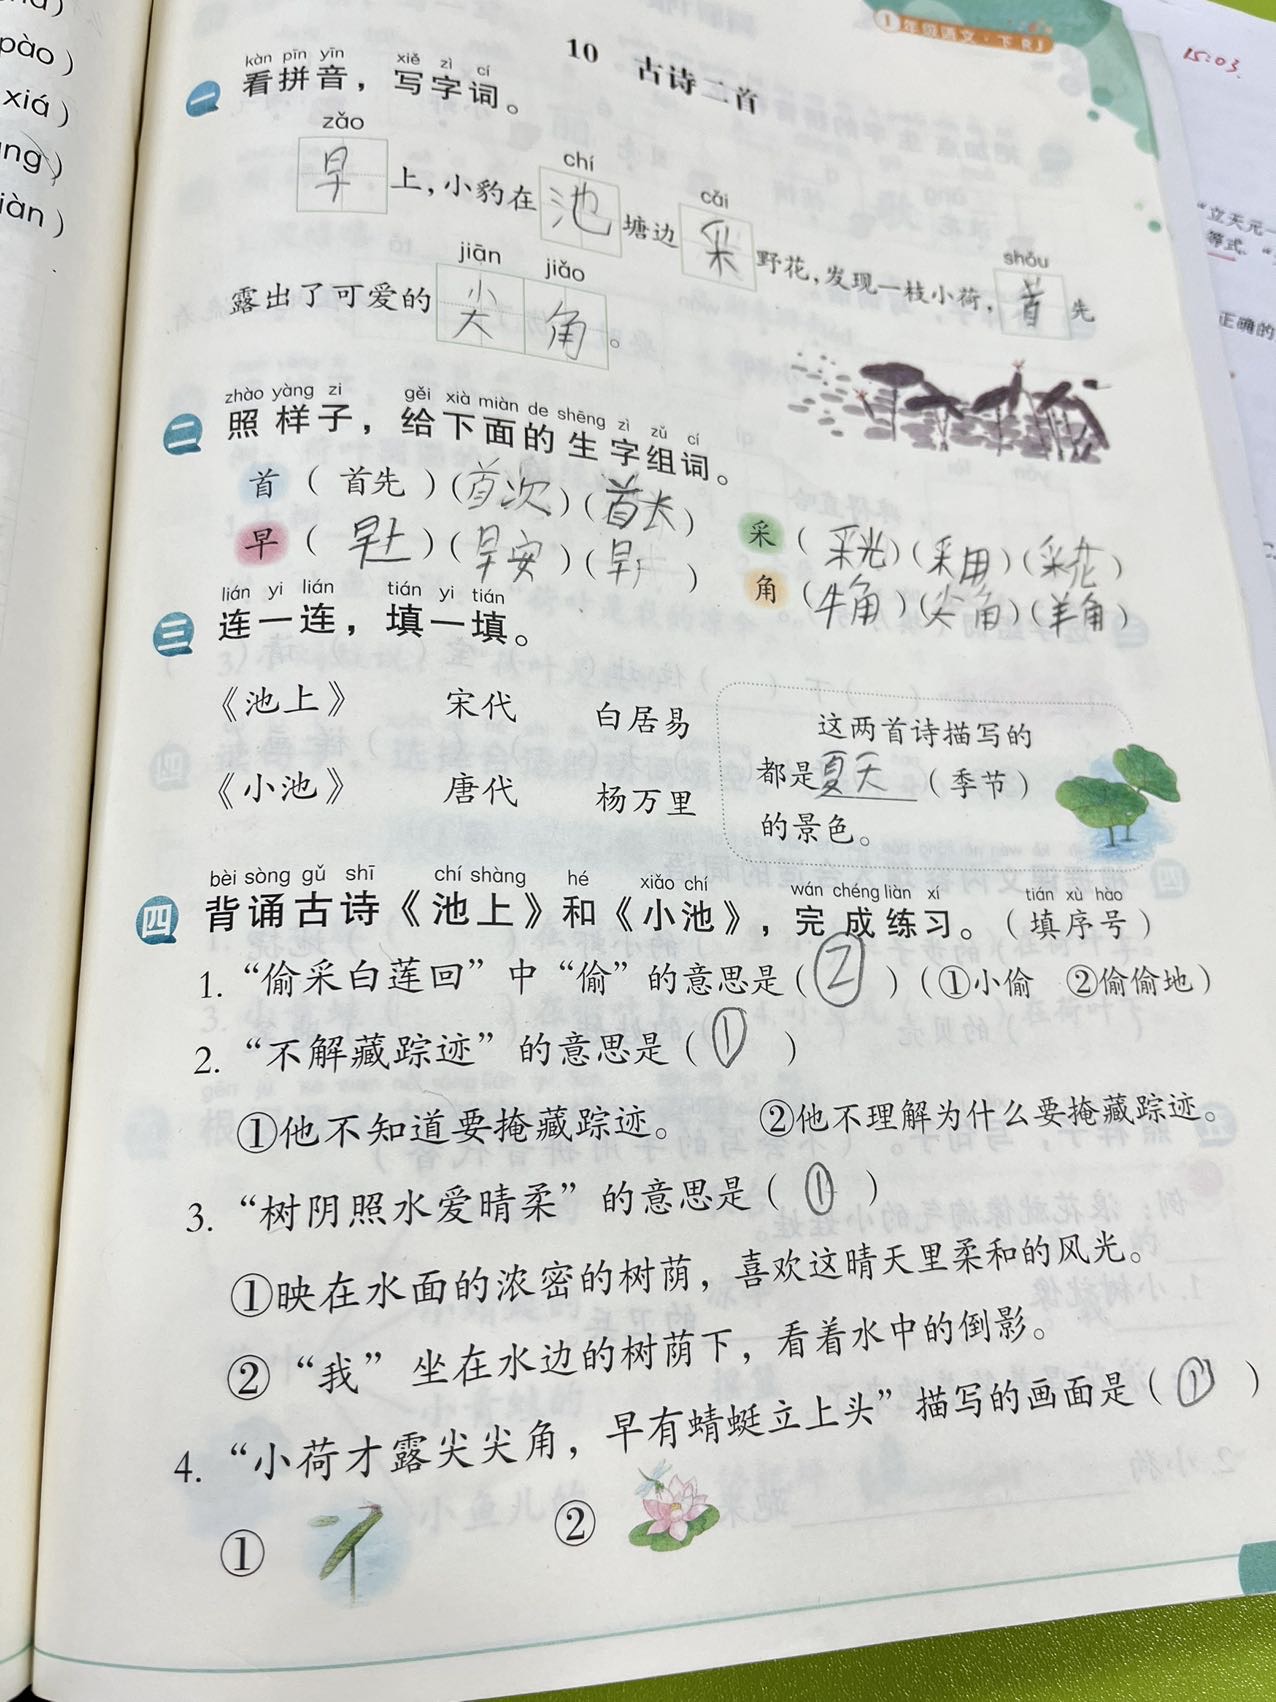 pào)
xiá)
ng)
iàn)
①年级语文·下 RJ
15:03.
10 古诗二首
kàn pīn yīn xiě zì cí
一 看拼音，写字词。
zǎo chí cǎi shǒu
早上，小豹在池塘边采野花，发现一枝小荷，首先
jiān jiǎo
露出了可爱的尖角。
zhào yàng zi gěi xià miàn de shēng zì zǔ cí
二 照样子，给下面的生字组词。
首（首先）（首次）（首长）
采（采光）（采用）（采花）
早（早上）（早安）（早）
角（牛角）（尖角）（羊角）
lián yi lián tián yi tián
三 连一连，填一填。
《池上》 宋代 白居易
《小池》 唐代 杨万里
这两首诗描写的
都是夏天（季节）
的景色。
bèi sòng gǔ shī chí shàng hé xiǎo chí wán chéng liàn xí tián xù hào
四 背诵古诗《池上》和《小池》，完成练习。（填序号）
1. “偷采白莲回”中“偷”的意思是（②）（①小偷 ②偷偷地）
2. “不解藏踪迹”的意思是（①）
①他不知道要掩藏踪迹。 ②他不理解为什么要掩藏踪迹。
3. “树阴照水爱晴柔”的意思是（①）
①映在水面的浓密的树荫，喜欢这晴天里柔和的风光。
②“我”坐在水边的树荫下，看着水中的倒影。
4. “小荷才露尖尖角，早有蜻蜓立上头”描写的画面是（①）
① ②
“立天元一
等式.
正确的